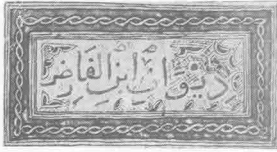 ديوان ابن الفارض